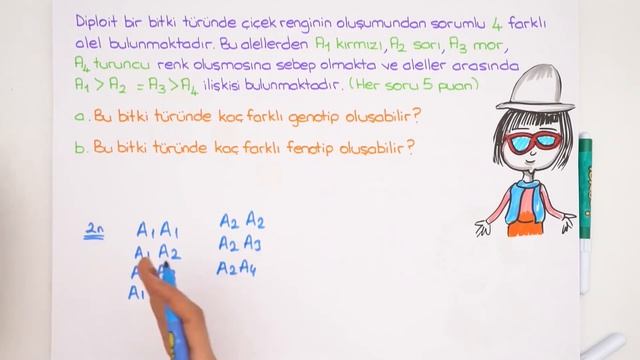 Diploit bir bitki türünde çiçek renginin oluşumundan sorumlu 4 farklı
alel bulunmaktadır. Bu alellerden A₁ kırmızı, A₂ sarı, A₃ mor,
A₄ turuncu renk oluşmasına sebep olmakta ve aleller arasında
A₁ > A₂ = A₃ > A₄ ilişkisi bulunmaktadır. (Her soru 5 puan)
a. Bu bitki türünde kaç farklı genotip oluşabilir?
b. Bu bitki türünde kaç farklı fenotip oluşabilir?
2n
A₁ A₁
A₁ A₂
A₁
A₂ A₂
A₂ A₃
A₂ A₄